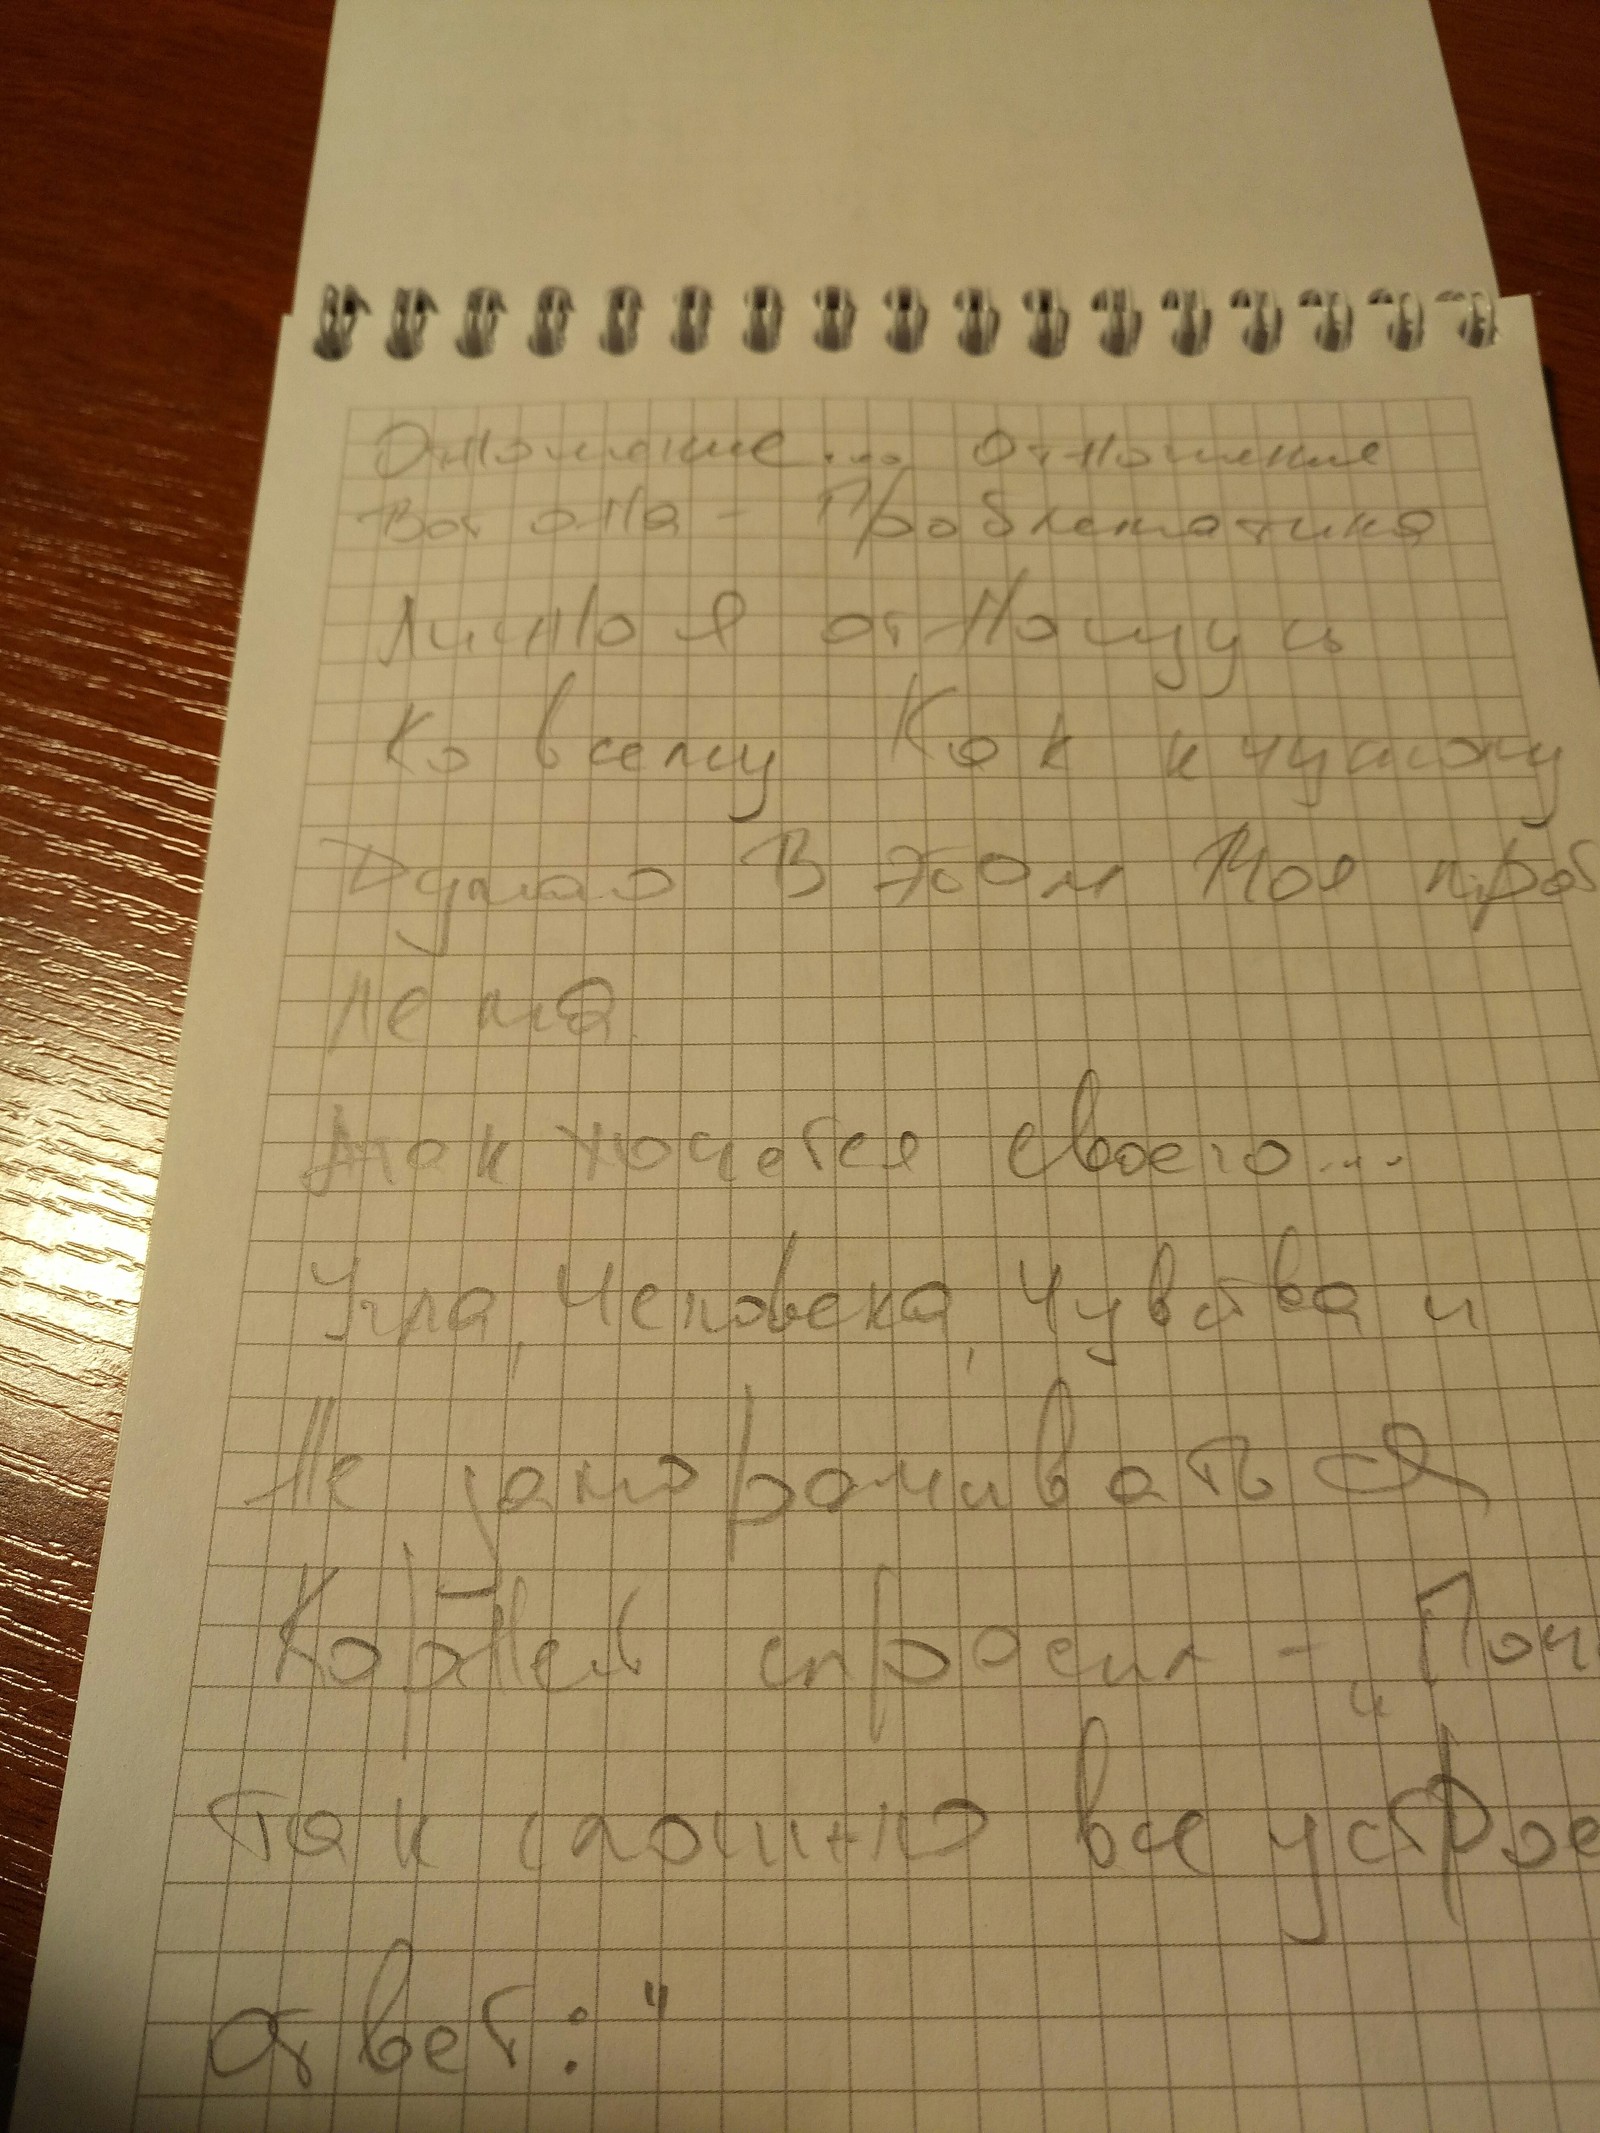 Отношение... отношение
Вот она - Проблематика
Лично я отношусь
Ко всему Как к чужому
Думаю В этом Моя проб
лема.
так хочется своего...
Угла, Человека, Чувства и
Не заморачиваться
Корней спросил - "Поч
так сложно все устрое
ответ: "